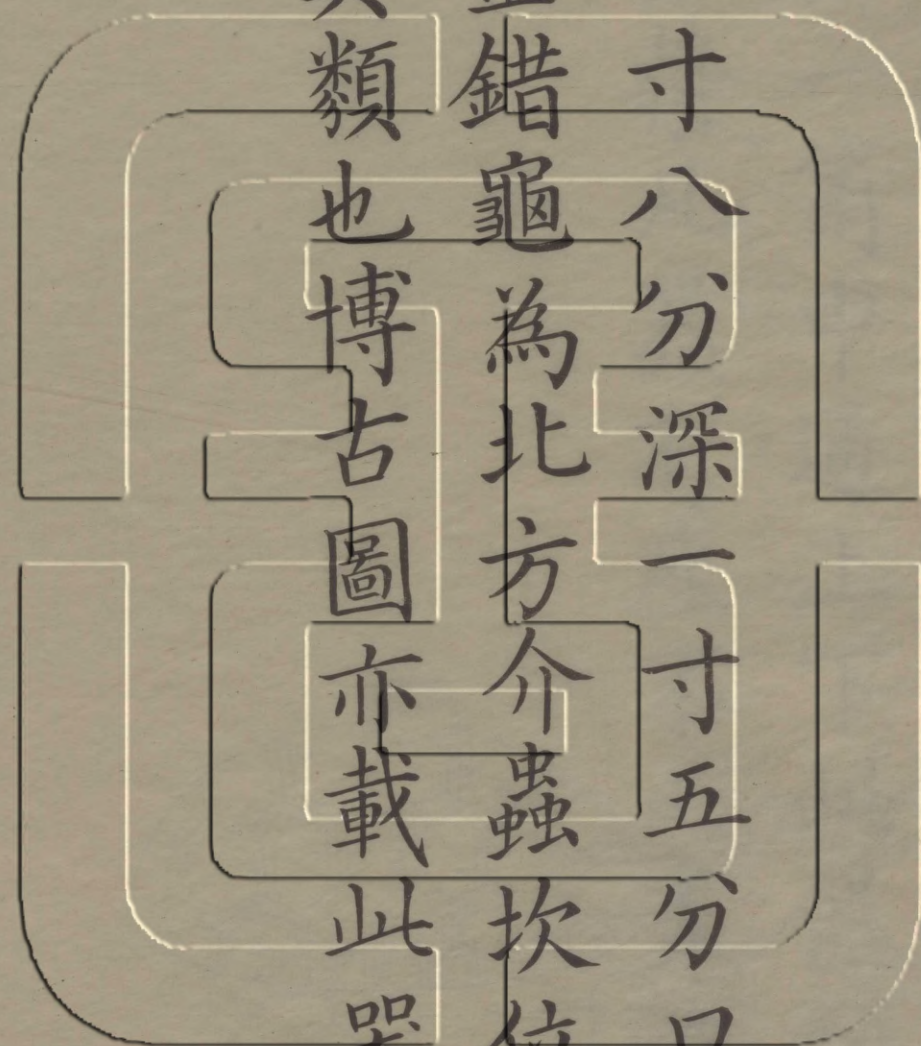 寸八分深一寸五分口
錯龜為北方介蟲坎位
類也博古圖亦載此器